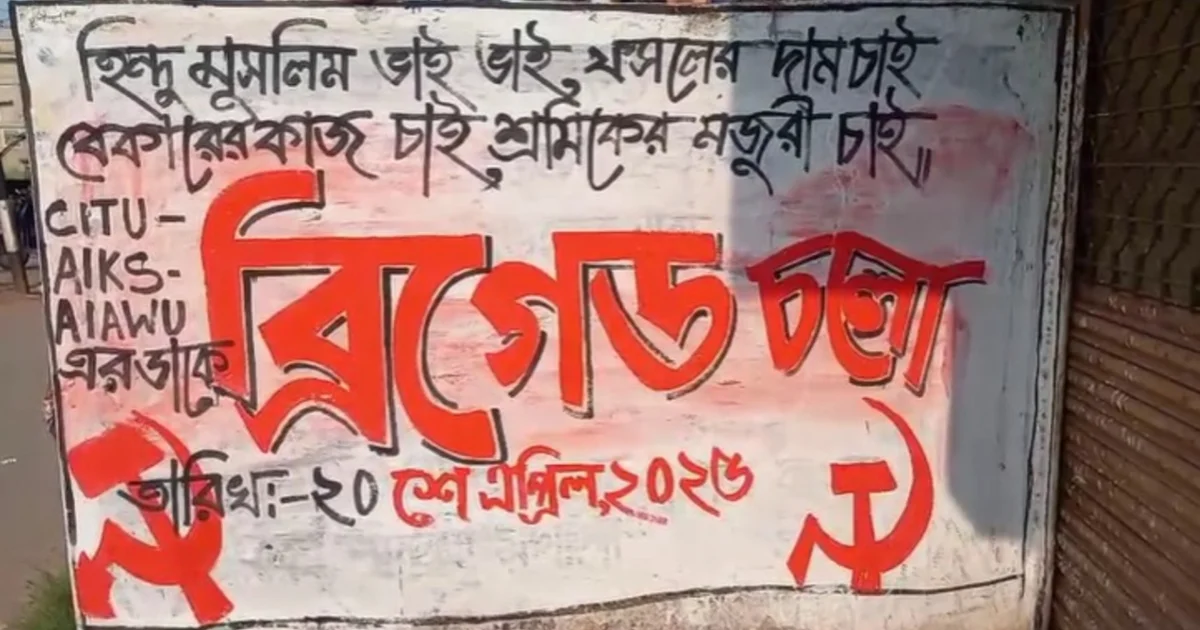 হিন্দু মুসলিম ভাই ভাই, ফসলের দাম চাই
বেকারের কাজ চাই, শ্রমিকের মজুরী চাই॥
CITU-
AIKS-
AIAWU
এর ডাকে
ব্রিগেড চলো
তারিখ:-২০ শে এপ্রিল,২০২৫